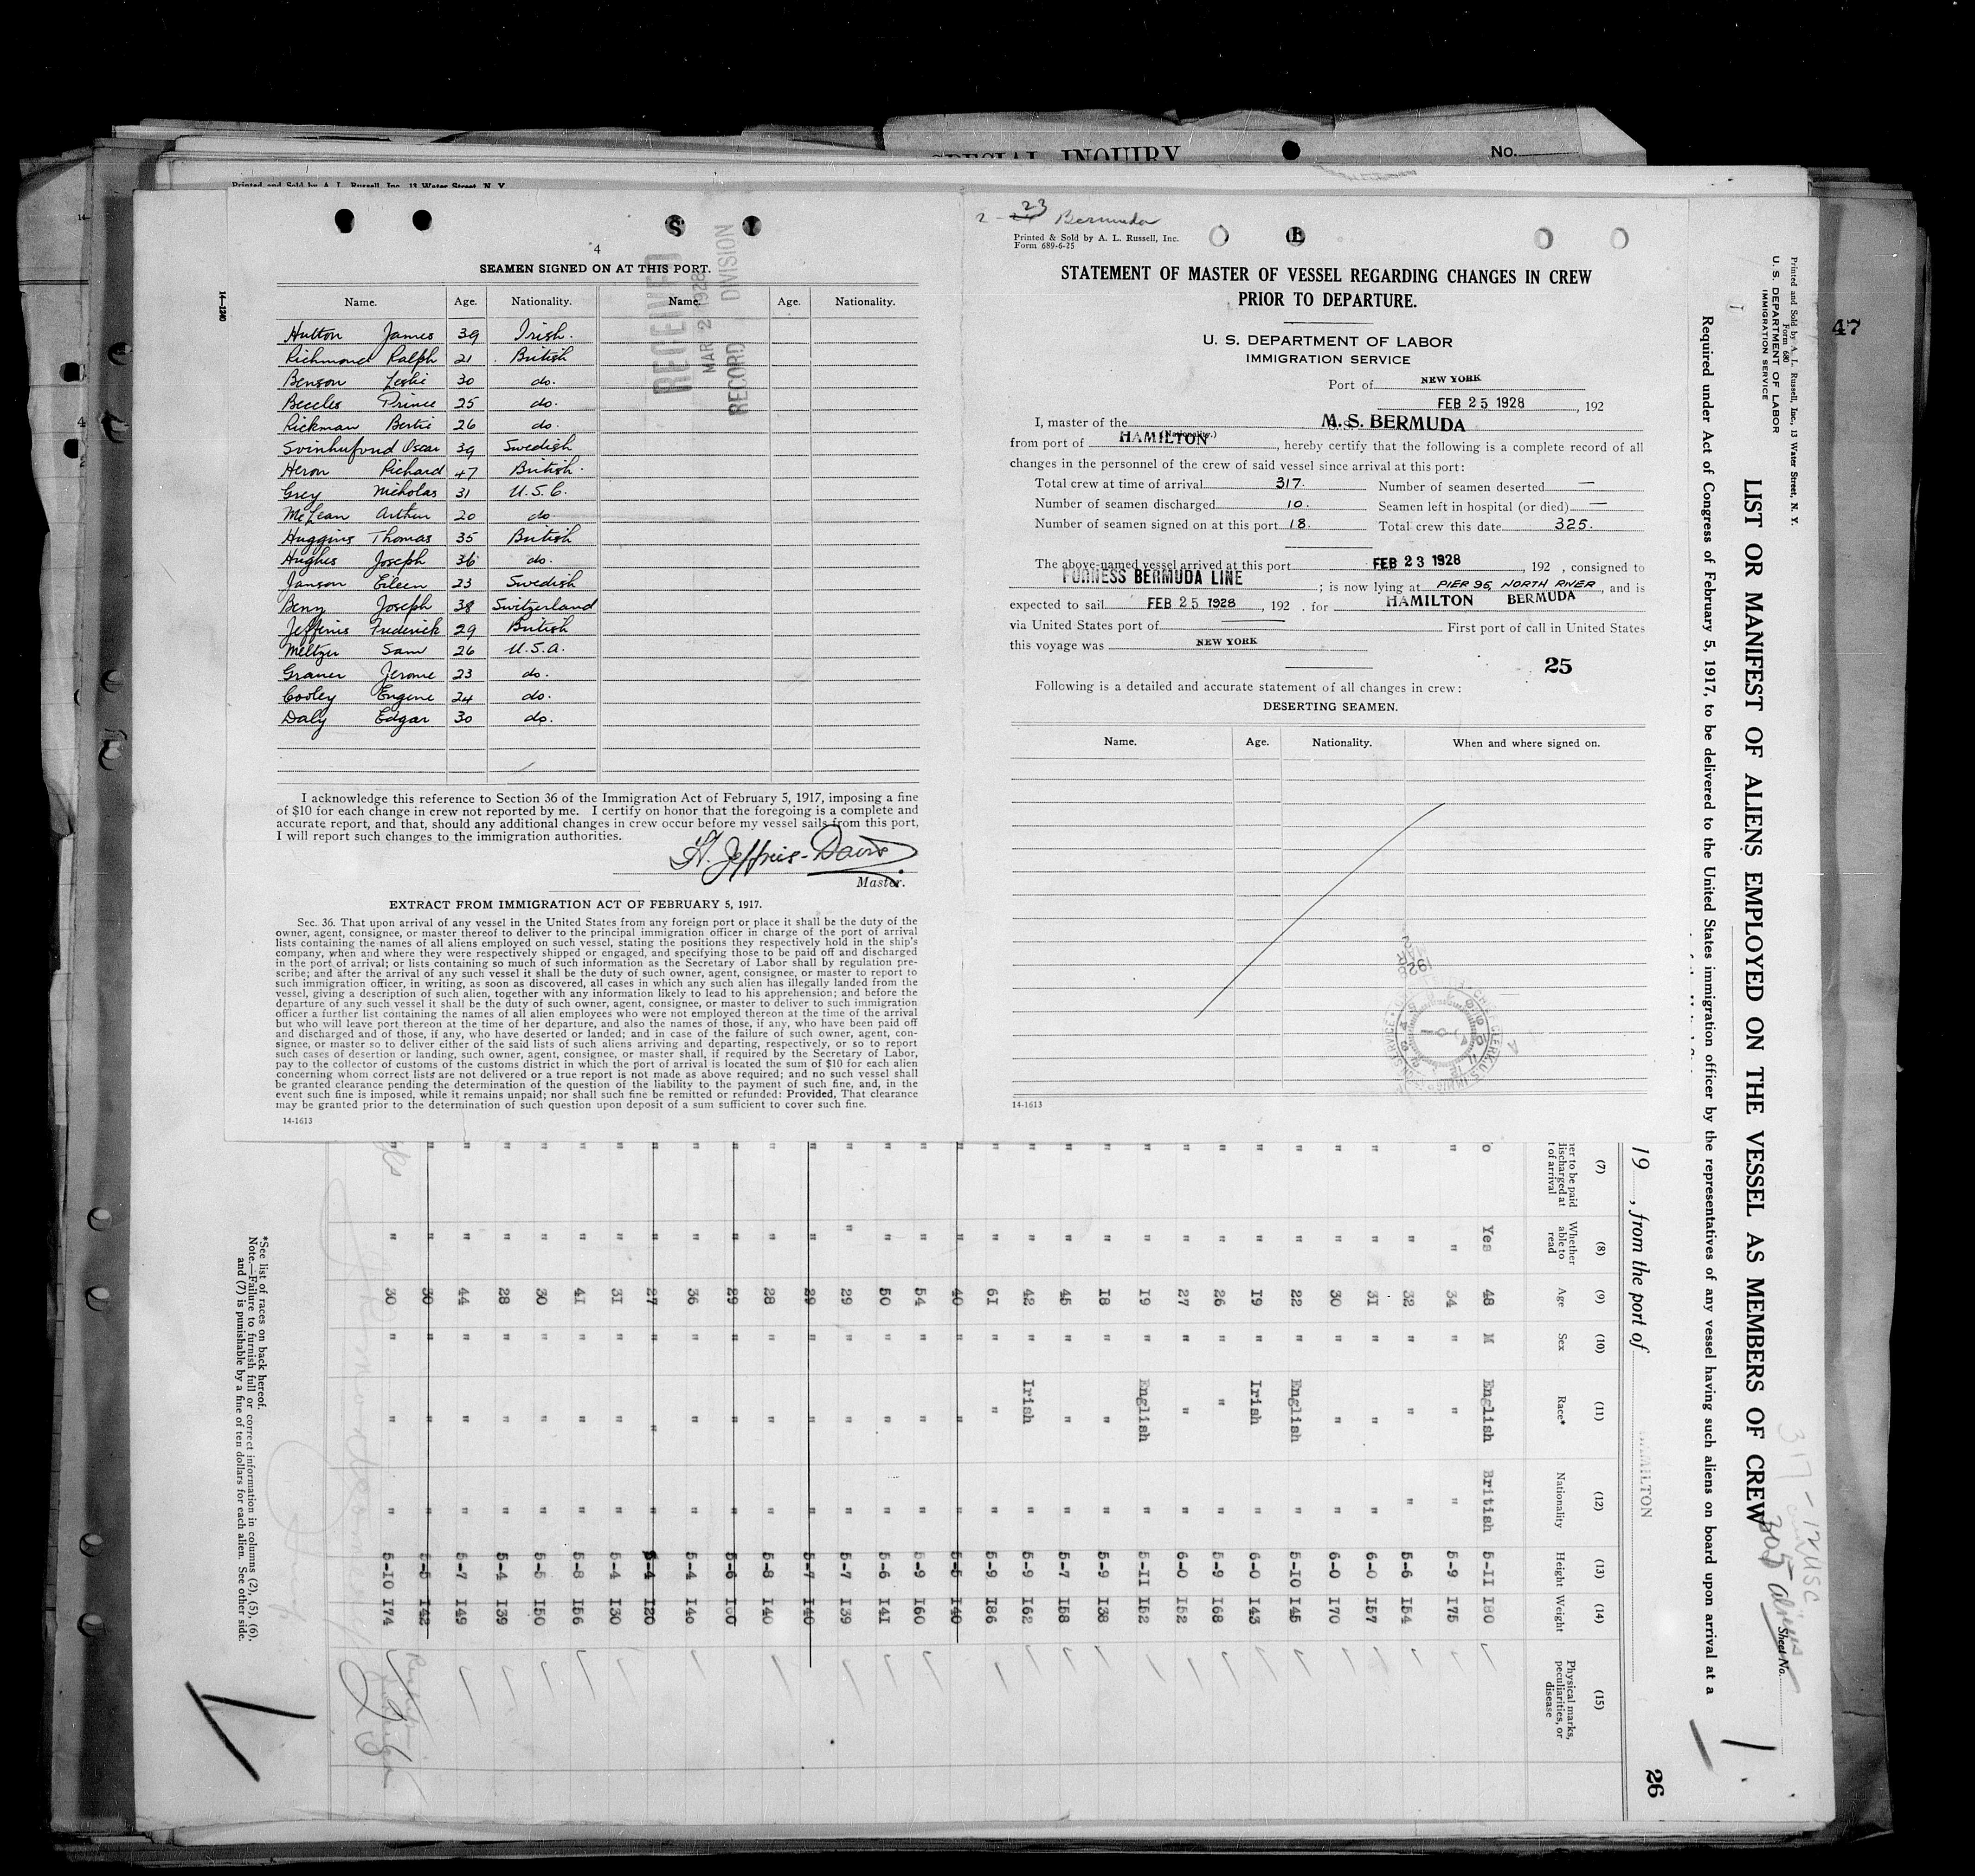 SPECIAL INQUIRY
No.
Printed and Sold by A. L. Russell, Inc. 13 Water Street, N. Y.
4
SEAMEN SIGNED ON AT THIS PORT.
Name. Age. Nationality. Name. Age. Nationality.
Hutton James 39 Irish.
Richmond Ralph 21 British
Benson Leslie 30 do.
Beccles Prince 25 do.
Rickman Bertie 26 do.
Svinhufvud Oscar 39 Swedish
Heron Richard 47 British.
Grey Nicholas 31 U.S.C.
McLean Arthur 20 do
Huggins Thomas 35 British
Hughes Joseph 36 do.
Janson Eileen 23 Swedish
Beny Joseph 38 Switzerland
Jefferis Frederick 29 British
Meltzer Sam 26 U.S.A.
Graner Jerome 23 do.
Cooley Eugene 24 do.
Daly Edgar 30 do.
RECEIVED
MAR 2 1928
RECORD DIVISION
14-1240
I acknowledge this reference to Section 36 of the Immigration Act of February 5, 1917, imposing a fine
of $10 for each change in crew not reported by me. I certify on honor that the foregoing is a complete and
accurate report, and that, should any additional changes in crew occur before my vessel sails from this port,
I will report such changes to the immigration authorities.
H. Jeffries-Davis
Master.
EXTRACT FROM IMMIGRATION ACT OF FEBRUARY 5, 1917.
Sec. 36. That upon arrival of any vessel in the United States from any foreign port or place it shall be the duty of the
owner, agent, consignee, or master thereof to deliver to the principal immigration officer in charge of the port of arrival
lists containing the names of all aliens employed on such vessel, stating the positions they respectively hold in the ship's
company, when and where they were respectively shipped or engaged, and specifying those to be paid off and discharged
in the port of arrival; or lists containing so much of such information as the Secretary of Labor shall by regulation pre-
scribe; and after the arrival of any such vessel it shall be the duty of such owner, agent, consignee, or master to report to
such immigration officer, in writing, as soon as discovered, all cases in which any such alien has illegally landed from the
vessel, giving a description of such alien, together with any information likely to lead to his apprehension; and before the
departure of any such vessel it shall be the duty of such owner, agent, consignee, or master to deliver to such immigration
officer a further list containing the names of all alien employees who were not employed thereon at the time of the arrival
but who will leave port thereon at the time of her departure, and also the names of those, if any, who have been paid off
and discharged and of those, if any, who have deserted or landed; and in case of the failure of such owner, agent, con-
signee, or master so to deliver either of the said lists of such aliens arriving and departing, respectively, or so to report
such cases of desertion or landing, such owner, agent, consignee, or master shall, if required by the Secretary of Labor,
pay to the collector of customs of the customs district in which the port of arrival is located the sum of $10 for each alien
concerning whom correct lists are not delivered or a true report is not made as above required; and no such vessel shall
be granted clearance pending the determination of the question of the liability to the payment of such fine, and, in the
event such fine is imposed, while it remains unpaid; nor shall such fine be remitted or refunded: Provided, That clearance
may be granted prior to the determination of such question upon deposit of a sum sufficient to cover such fine.
14-1613
2-23 Bermuda
Printed & Sold by A. L. Russell, Inc.
Form 689-6-25
STATEMENT OF MASTER OF VESSEL REGARDING CHANGES IN CREW
PRIOR TO DEPARTURE.
U. S. DEPARTMENT OF LABOR
IMMIGRATION SERVICE
Port of NEW YORK
FEB 25 1928, 192
I, master of the M.S. BERMUDA
(Nationality.)
from port of HAMILTON, hereby certify that the following is a complete record of all
changes in the personnel of the crew of said vessel since arrival at this port:
Total crew at time of arrival 317. Number of seamen deserted —
Number of seamen discharged 10. Seamen left in hospital (or died) —
Number of seamen signed on at this port 18. Total crew this date 325.
The above-named vessel arrived at this port FEB 23 1928, 192 , consigned to
FURNESS BERMUDA LINE; is now lying at PIER 95, NORTH RIVER, and is
expected to sail FEB 25 1928, 192 . for HAMILTON BERMUDA
via United States port of — First port of call in United States
this voyage was NEW YORK
25
Following is a detailed and accurate statement of all changes in crew:
DESERTING SEAMEN.
Name. Age. Nationality. When and where signed on.
14-1613
47
Printed and Sold by A. L. Russell, Inc., 13 Water Street, N. Y.
Form 680
U. S. DEPARTMENT OF LABOR
IMMIGRATION SERVICE
LIST OR MANIFEST OF ALIENS EMPLOYED ON THE VESSEL AS MEMBERS OF CREW
Required under Act of Congress of February 5, 1917, to be delivered to the United States immigration officer by the representatives of any vessel having such aliens on board upon arrival at a
317 - 12 USC
305 aliens
Sheet No.
19 , from the port of HAMILTON
26
(7) (8) (9) (10) (11) (12) (13) (14) (15)
er to be paid discharged at t of arrival Whether able to read Age Sex Race* Nationality Height Weight Physical marks, peculiarities, or disease
o Yes 48 M English British 5-11 180
" " 34 " " " 5-9 175
" 32 " " " 5-6 154
" " 31 " " " 6-0 157
" " 30 " " " 6-0 170
" " 22 " English " 5-10 145
" " 19 " Irish " 6-0 143
" " 26 " " " 5-9 168
" " 27 " " " 6-0 152
" " 19 " English " 5-11 152
" " 18 " " " 5-9 138
" " 45 " " " 5-7 158
" " 42 " Irish " 5-9 162
" " 61 " " " 5-9 186
" " 40 " " " 5-5 140
" " 54 " " " 5-9 160
" " 50 " " " 5-6 141
" " 29 " " " 5-7 139
" " 29 " " " 5-7 140
" " 28 " " " 5-8 140
" " 29 " " " 5-6 150
" " 36 " " " 5-4 140
" " 27 " " " 5-4 120
" " 31 " " " 5-4 130
" " 41 " " " 5-8 156
" " 30 " " " 5-5 150
" " 28 " " " 5-4 139
" " 44 " " " 5-7 149
" " 30 " " " 5-5 142
" " 30 " " " 5-10 174
*See list of races on back hereof.
Note.—Failure to furnish full or correct information in columns (2), (5), (6),
and (7) is punishable by a fine of ten dollars for each alien. See other side.